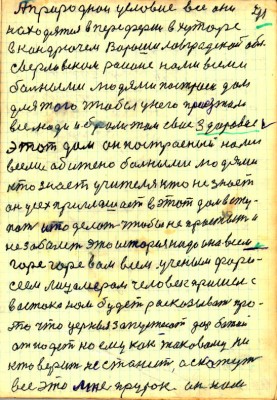 А природной условие все они
находятся в переферии в хуторе
в кондрючем Ворошиловградской обл.
Сверловском районе нами всеми
больными людями построен дом
для того чтобы у него проезжали
все люди и брали там свое Здоровье
Этот дом он построеный нами
всеми обижено больными людями
кто знает учителя кто не знает
он усех приглашает в этот дом
что делать чтобы не простыть и
не заболеть это история надо она всем
горе горе вам всем ученым фари-
сеем лицемерам человек пришел с
востока нам будет рассказывать про-
это что церковь запускают дар божий
отпадет но ему как таковому ни
кто верит не станет, а скажут
все это мне пророк он нам